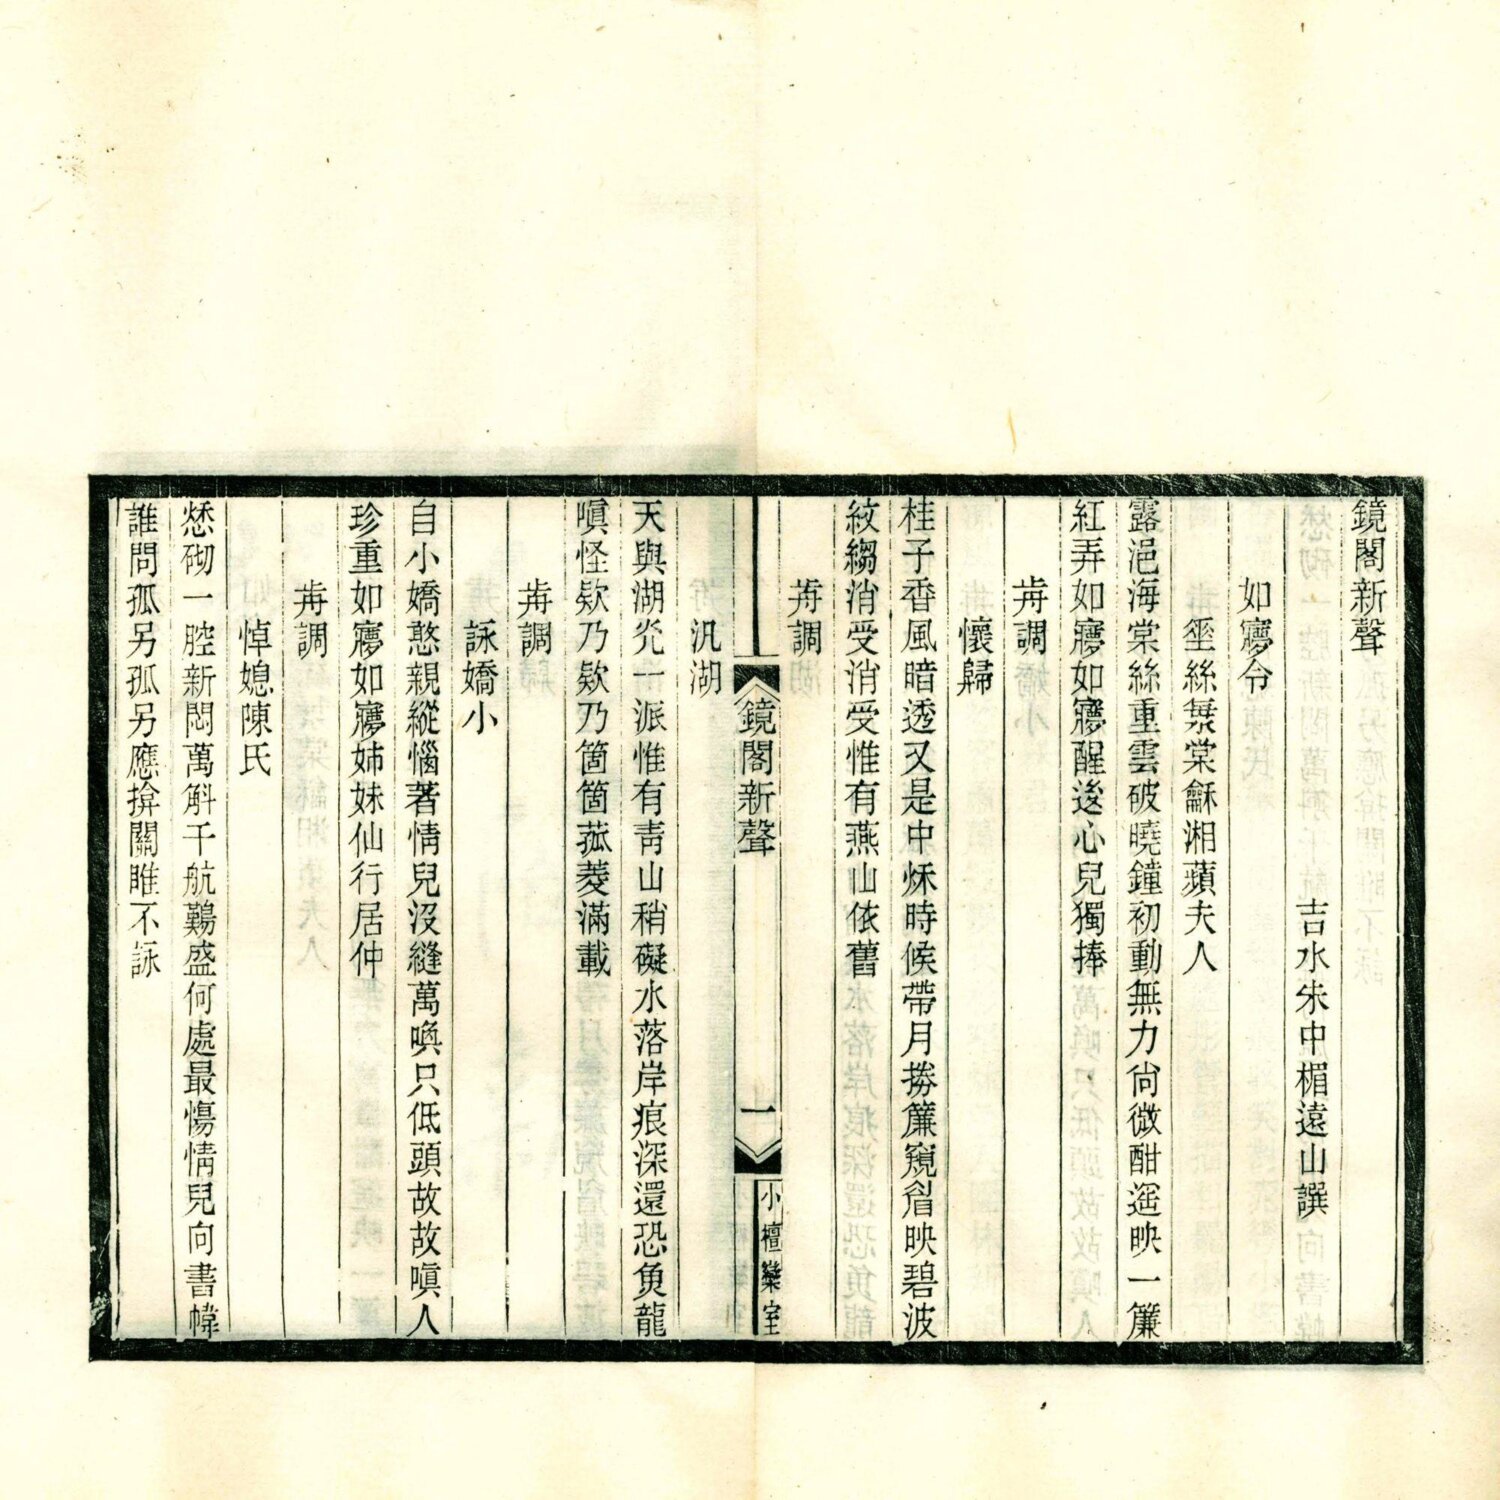 鏡閣新聲
吉水朱中楣遠山譔
如㝱令
埀絲𣞤棠龢湘蘋夫人
露浥海棠絲重雲破曉鐘初動無力尙微酣遥映一簾
紅弄如㝱如㝱醒後心兒獨捧
歬調
懷歸
桂子香風暗透又是中秌時候帶月捲簾窺眉映碧波
紋縐消受消受惟有燕山依舊
歬調
汎湖
天與湖灮一派惟有靑山稍礙水落岸痕深還恐負龍
嗔怪欵乃欵乃箇箇菰菱滿載
歬調
詠嬌小
自小嬌憨親縱惱著情兒沒縫萬喚只低頭故故嗔人
珍重如㝱如㝱姊妹仙行居仲
歬調
悼媳陳氏
愁砌一腔新悶萬斛千航難盛何處最傷情兒向書幃
誰問孤另孤另應揜關雎不詠
鏡閣新聲
一
小檀欒室